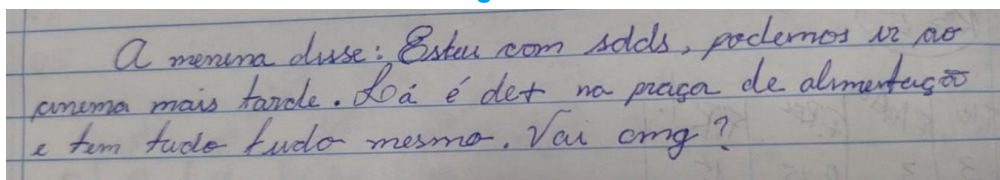 A menina disse: Estou com sdds, podemos ir ao
cinema mais tarde. Lá é det na praça de alimentação
e tem tudo tudo mesmo. Vai cmg?